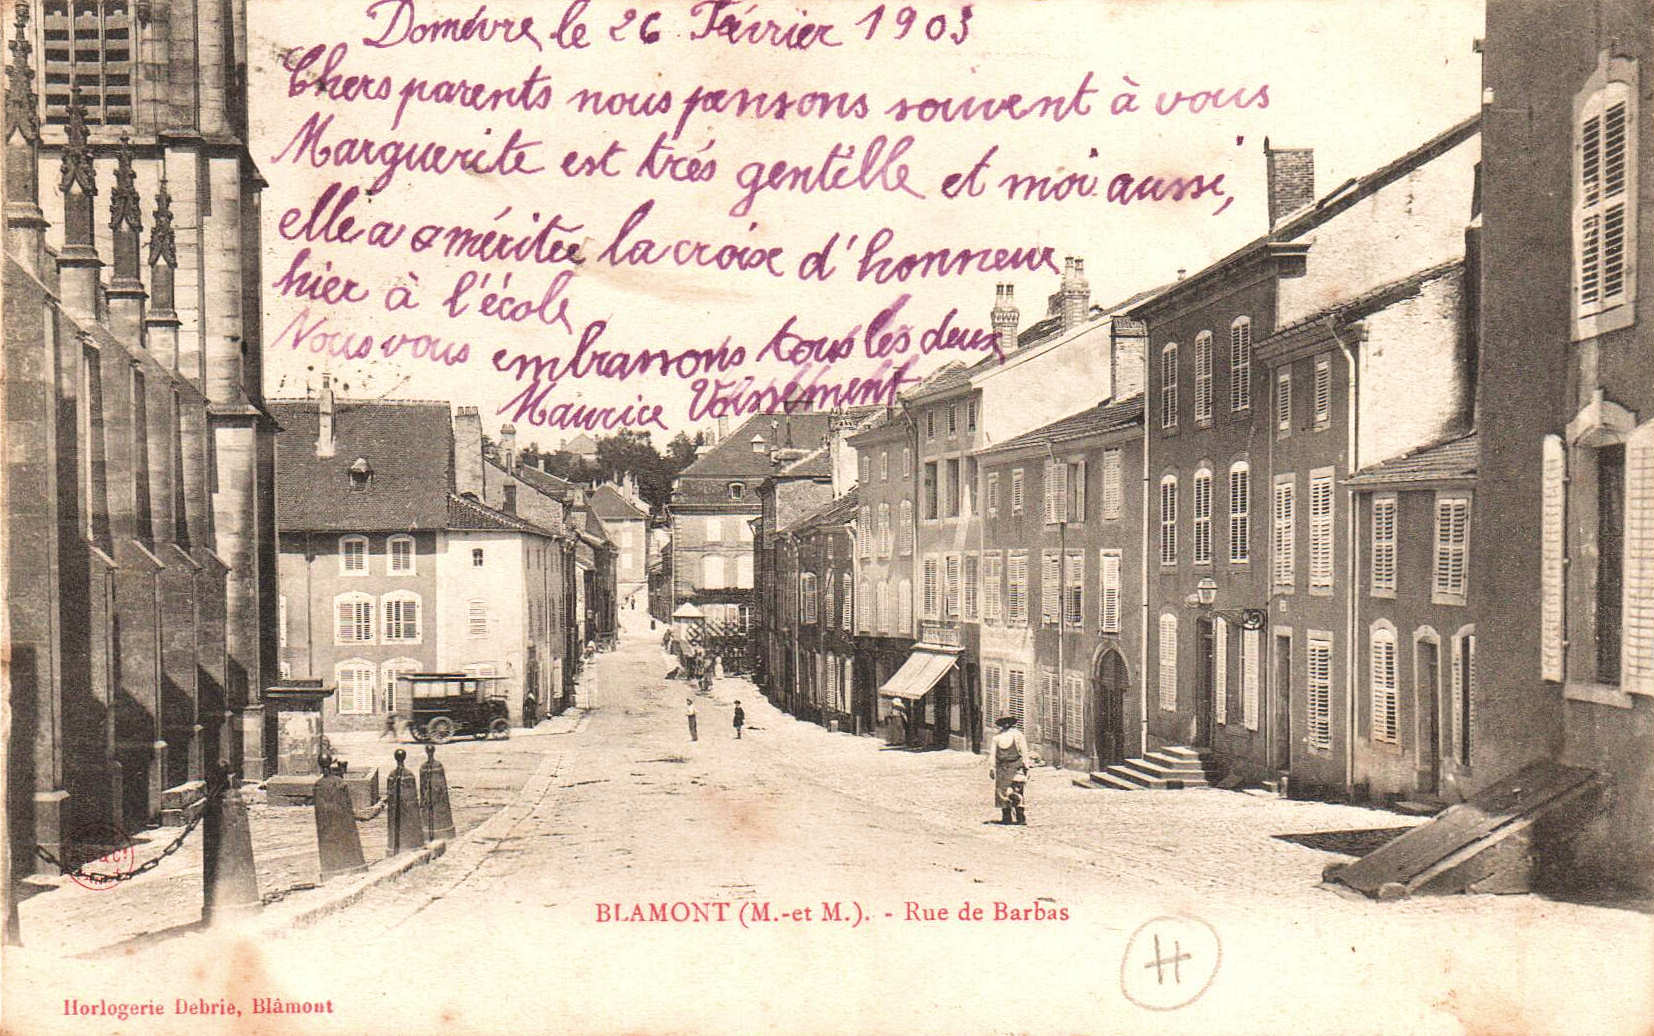 Domévre le 26 Février 1903
Chers parents nous pensons souvent à vous
Marguerite est trés gentille et moi aussi,
elle a méritée la croix d'honneur
hier à l'école
Nous vous embrassons tous les deux
Maurice
BLAMONT (M.-et M.). - Rue de Barbas
H
Horlogerie Debrie, Blâmont